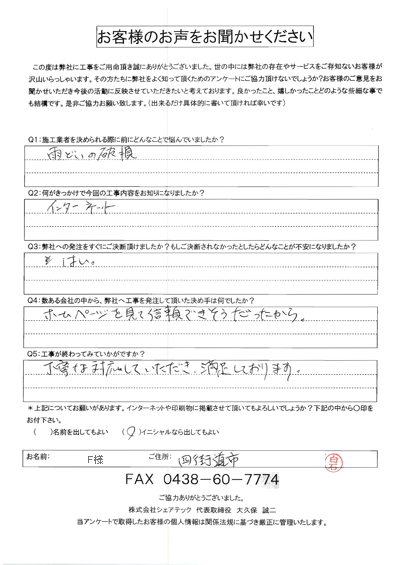 お客様のお声をお聞かせください
この度は弊社に工事をご用命頂き誠にありがとうございました。世の中には弊社の存在やサービスをご存知ないお客様が
沢山いらっしゃいます。その方たちに弊社をよく知って頂くためのアンケートにご協力頂けないでしょうか？お客様のご意見をお
聞かせいただき今後の活動に反映させていただきたいと考えております。良かったこと、嬉しかったことどのような些細な事で
も結構です。是非ご協力お願い致します。（出来るだけ具体的に書いて頂ければ幸いです）
Q1：施工業者を決められる際に前にどんなことで悩んでいましたか？
雨どいの破損
Q2：何がきっかけで今回の工事内容をお知りになりましたか？
インターネット
Q3：弊社への発注をすぐにご決断頂けましたか？もしご決断されなかったとしたらどんなことが不安になりましたか？
はい。
Q4：数ある会社の中から、弊社へ工事を発注して頂いた決め手は何でしたか？
ホームページを見て信頼できそうだったから。
Q5：工事が終わってみていかがですか？
丁寧な対応していただき、満足しております。
＊上記についてお願いがあります。インターネットや印刷物に掲載させて頂いてもよろしいでしょうか？下記の中から〇印を
お付下さい。
（　）名前を出してもよい　（〇）イニシャルなら出してもよい
お名前：　F様　ご住所：　四街道市
FAX 0438-60-7774
ご協力ありがとうございました。
株式会社シェアテック 代表取締役 大久保 誠二
当アンケートで取得したお客様の個人情報は関係法規に基づき厳正に管理いたします。